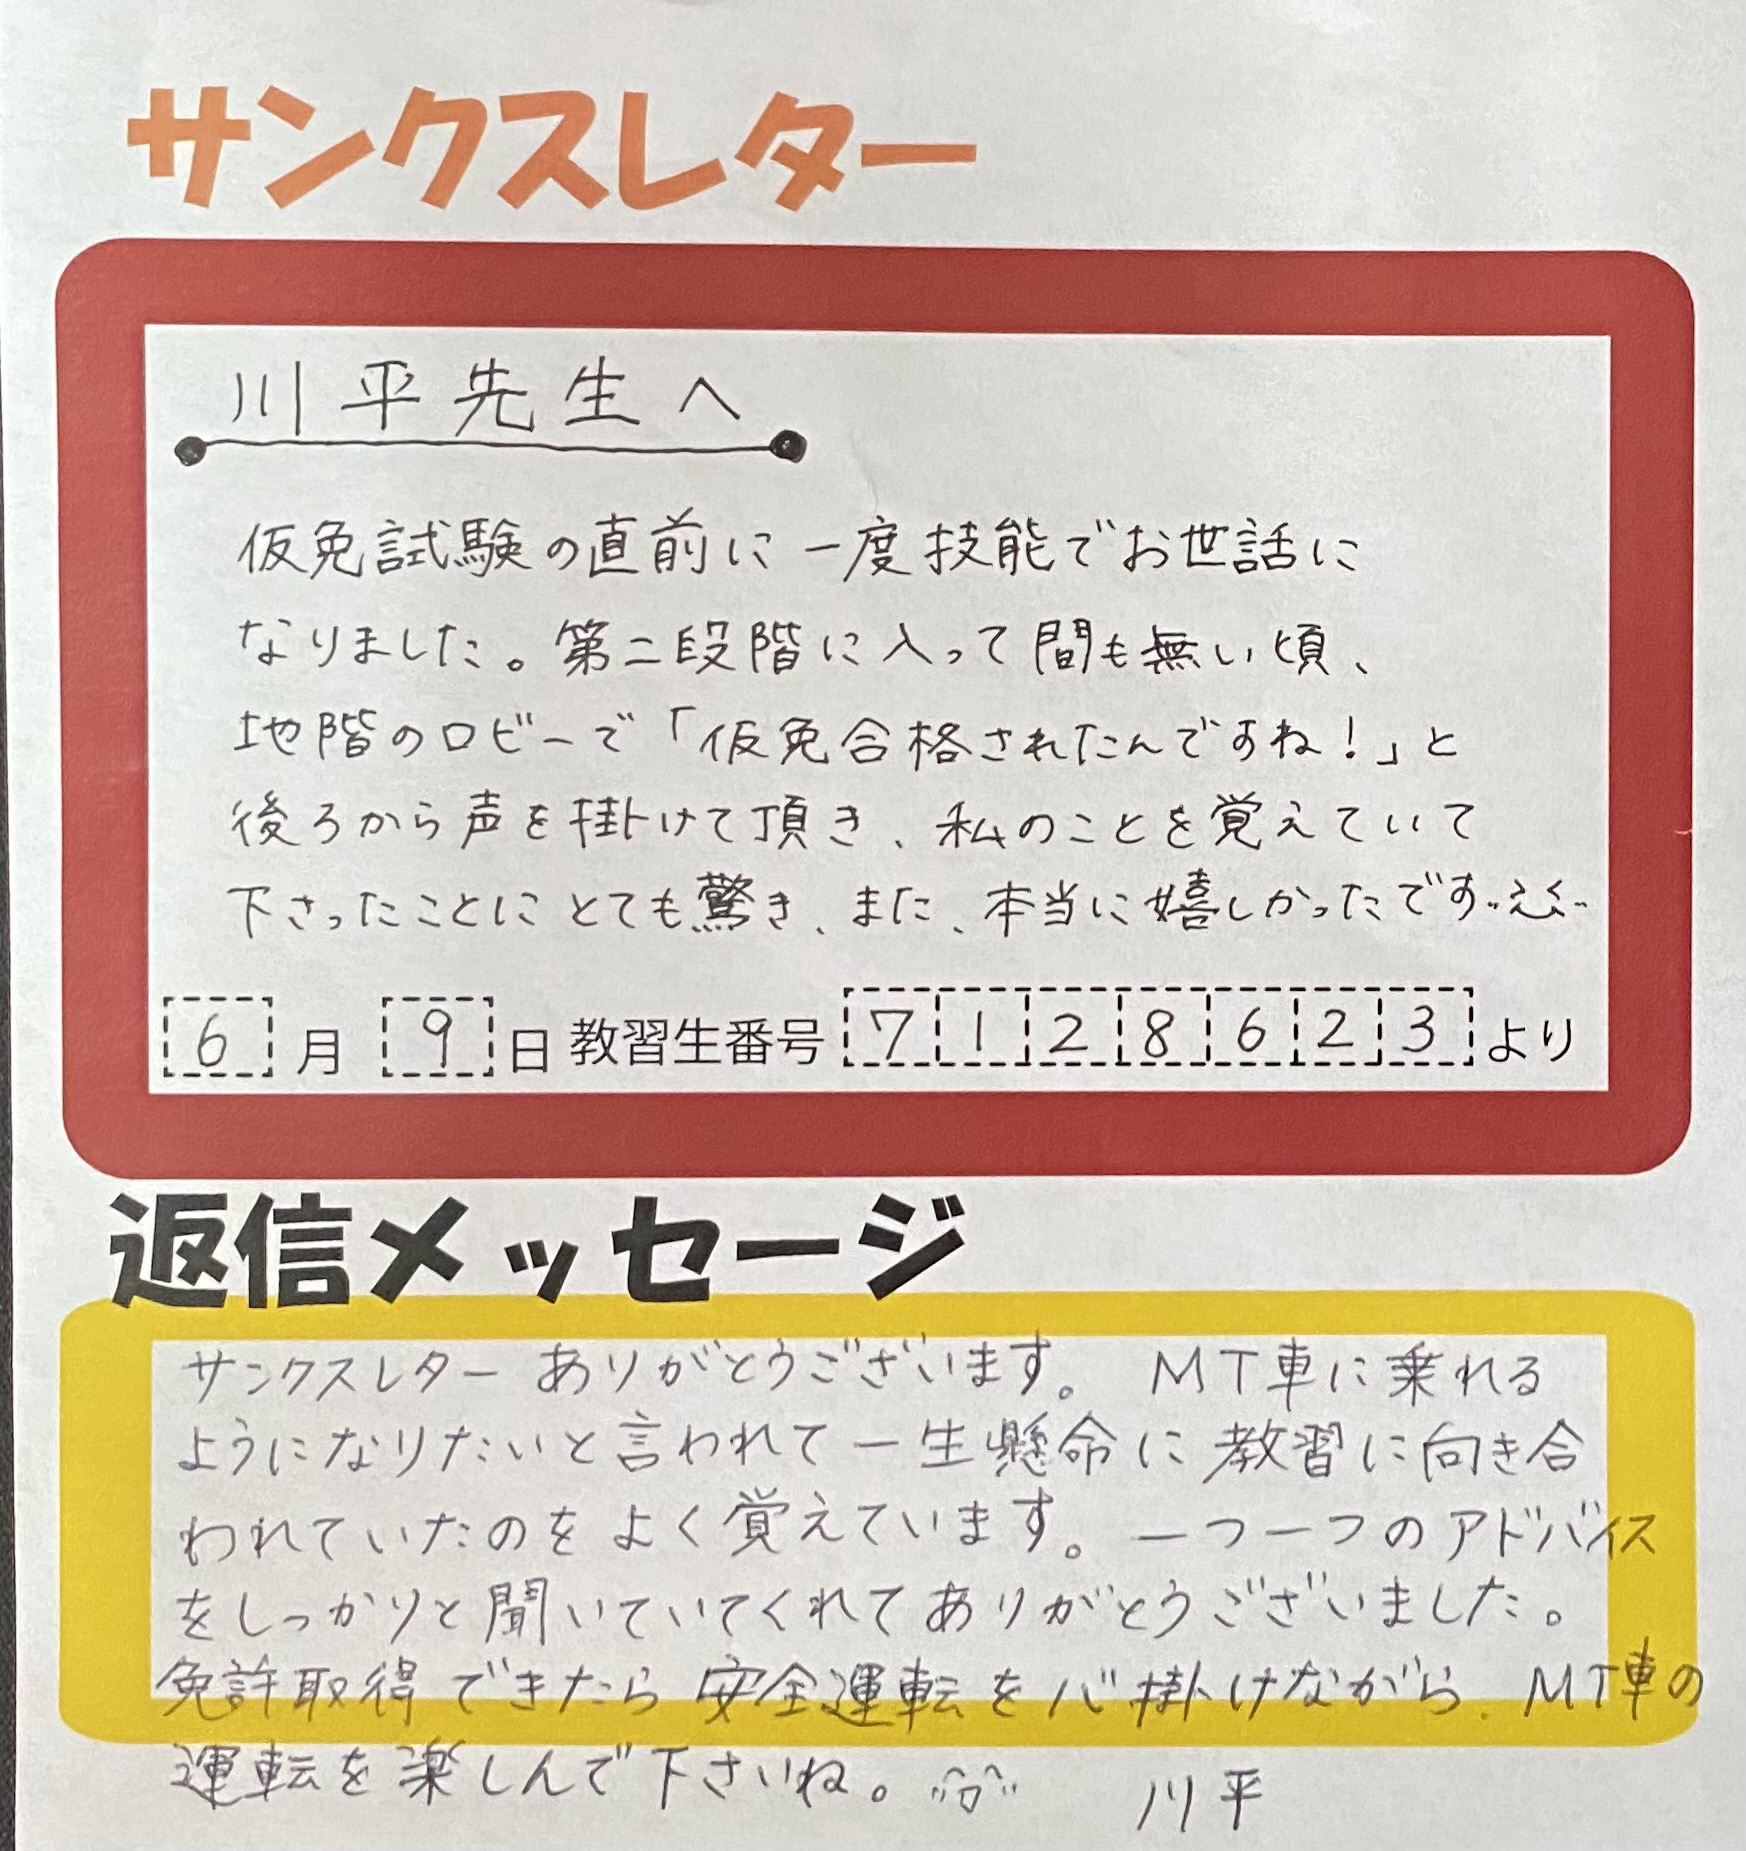 サンクスレター
川平先生へ
仮免試験の直前に一度技能でお世話に
なりました。第二段階に入って間も無い頃、
地階のロビーで「仮免合格されたんですね!」と
後ろから声を掛けて頂き、私のことを覚えていて
下さったことにとても驚き、また、本当に嬉しかったです
6月9日教習生番号7128623より
返信メッセージ
サンクスレターありがとうございます。MT車に乗れる
ようになりたいと言われて一生懸命に教習に向き合
われていたのをよく覚えています。一つ一つのアドバイス
をしっかりと聞いていてくれてありがとうございました。
免許取得できたら安全運転を心掛けながら、MT車の
運転を楽しんで下さいね。 川平